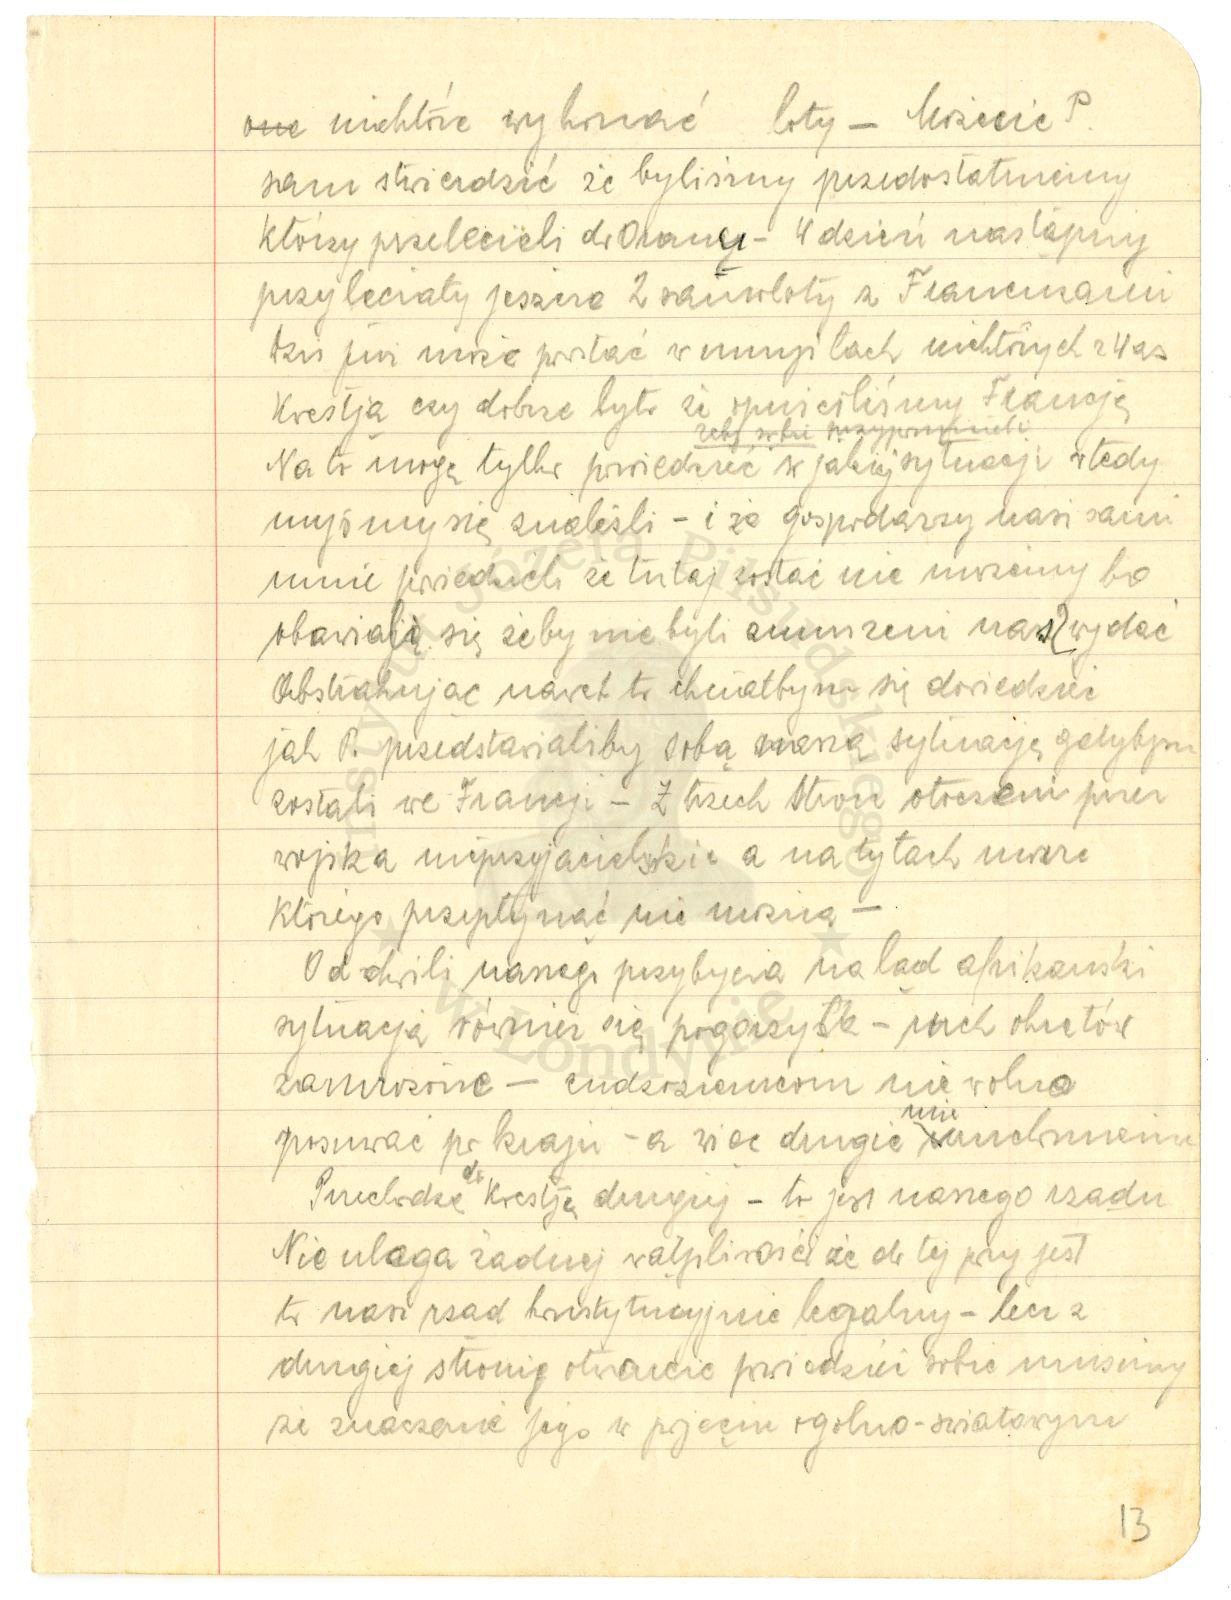 one niektóre wykonać loty — Możecie P.
sam stwierdzić że byliśmy przedostatniemy
którzy przelecieli do Orany — W dzień następny
przyleciały jeszcze 2 samoloty z Francuzami
Dziś już może powstać w umysłach niektórych z Was
Kwestja czy dobrze było że opuściliśmy Francję
żeby sobie przypomnieli
Na to mogę tylko powiedzieć w jakiej sytuacji wtedy
myśmy się znaleźli — i że gospodarzy nasi sami
mnie powiedzieli że tutaj zostać nie możemy bo
obawiają się żeby nie byli zmuszeni nas wydać
Abstrahując nawet to chciałbym się dowiedzieć
jak P. przedstawialiby sobą naszą sytuację gdybyśm
zostali we Francji — Z trzech stron otoczeni przez
wojska nieprzyjacielskie a na tyłach morze
którego przepłynąć nie można —
Od chwili naszego przybycia na ląd afrikanski
sytuacja również się pogorszyła — ruch okrętów
zamrożone — cudzoziemcom nie wolno
nie
posuwać po kraju — a więc drugie uruchomienie
do
Przechodzę Kwestję drugiej — to jest naszego rządu
Nie ulega żadnej wątpliwości że do tej pory jest
to nasz rząd konstytucyjnie legalny — lecz z
drugiej stronie otwarcie powiedzieć sobie musimy
że znaczenie jego w pojęciu ogolno-swiatowym
13
Instytut Józefa Piłsudskiego
w Londynie